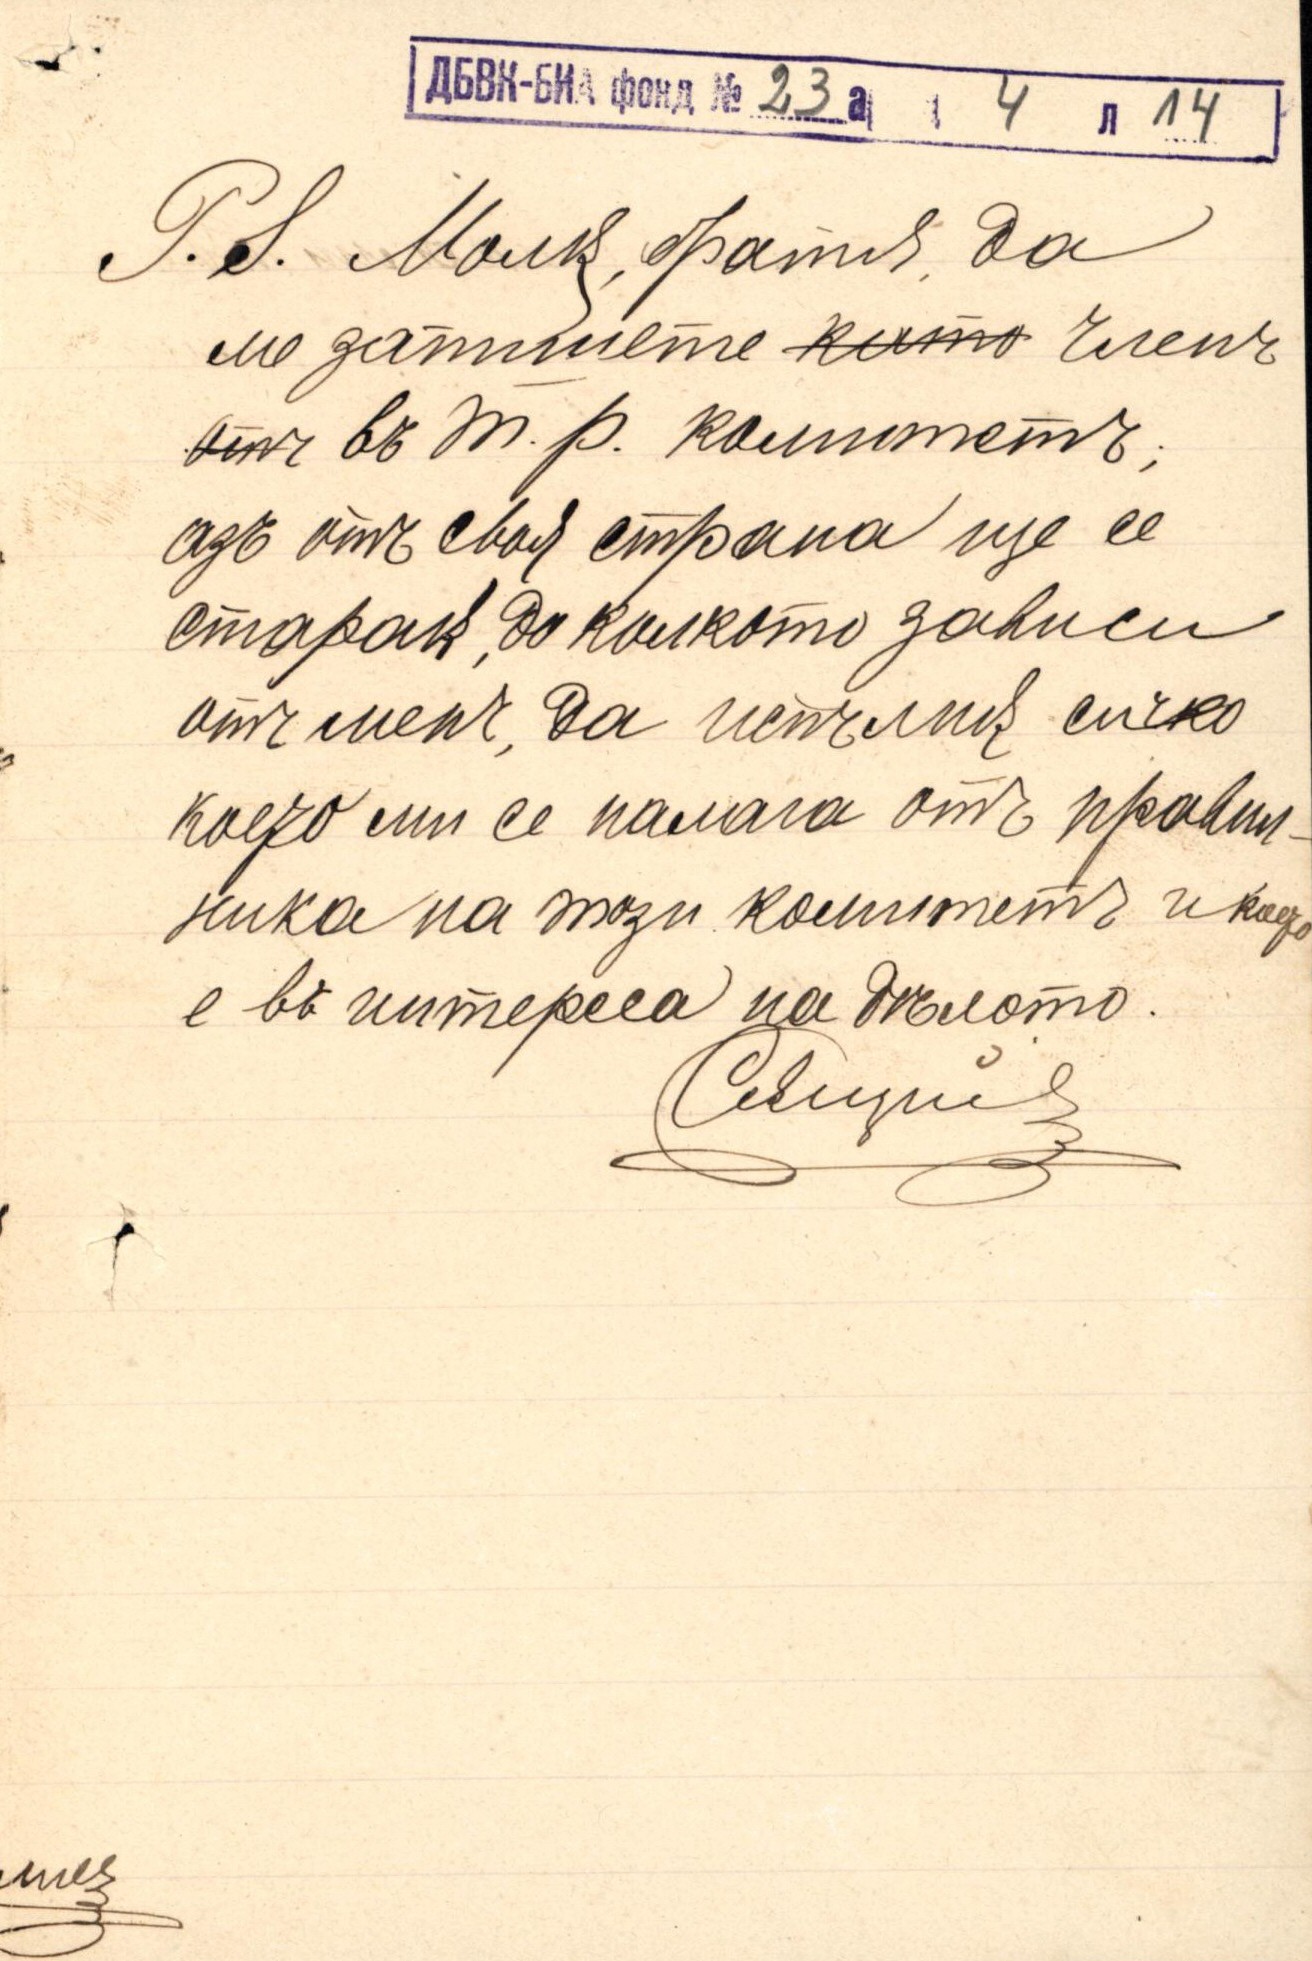 ДБВК-БИА фонд № 23 а 4 л 14
P.S. Молѫ, братя, да
ме запишете като членъ
отъ въ т. р. комитетъ;
азъ отъ своя страна ще се
стараѫ, до колкото зависи
отъ менъ, да испълнѭ сичко
което ми се налага отъ правил-
ника на този комитетъ и което
е въ интереса на дѣлото.